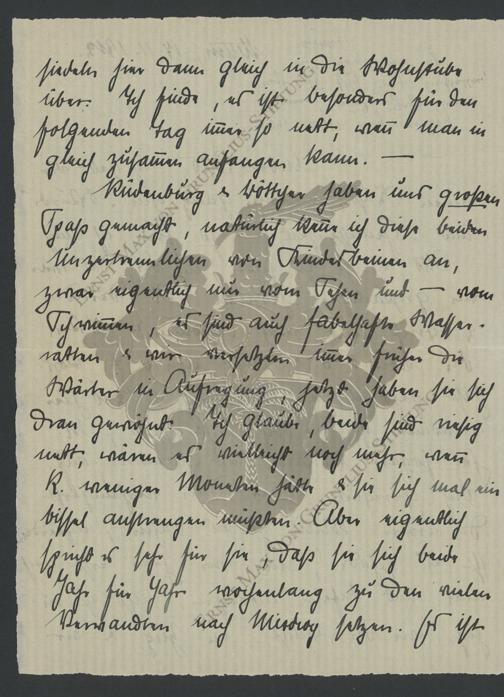 siedeln hier dann gleich in die Wohnstube
über. Ich finde, es ist besonders für den
folgenden Tag immer so nett, wenn man in
gleich zusammen anfangen kann. —
Rüdenburg & Böttcher haben uns großen
Spaß gemacht, natürlich kenne ich diese beiden
Unzertrennlichen von Kindesbeinen an,
zwar eigentlich nur vom Sehen und — vom
Schwimmen, es sind auch fabelhafte Wasser-
ratten & wir versetzten immer früher die
Wärter in Aufregung, jetzt haben sie sich
dran gewöhnt. Ich glaube, beide sind riesig
nett, wären es vielleicht noch mehr, wenn
R. weniger Moneten hätte & sie sich mal ein
bissel anstrengen müßten. Aber eigentlich
spricht es sehr für sie, daß sie sich beide
Jahr für Jahr wochenlang zu den vielen
Verwandten nach Misdroy setzen. Es ist
ERNST-MAX-VON-GRUNELIUS-STIFTUNG
ERNST-MAX-VON-GRUNELIUS-STIFTUNG